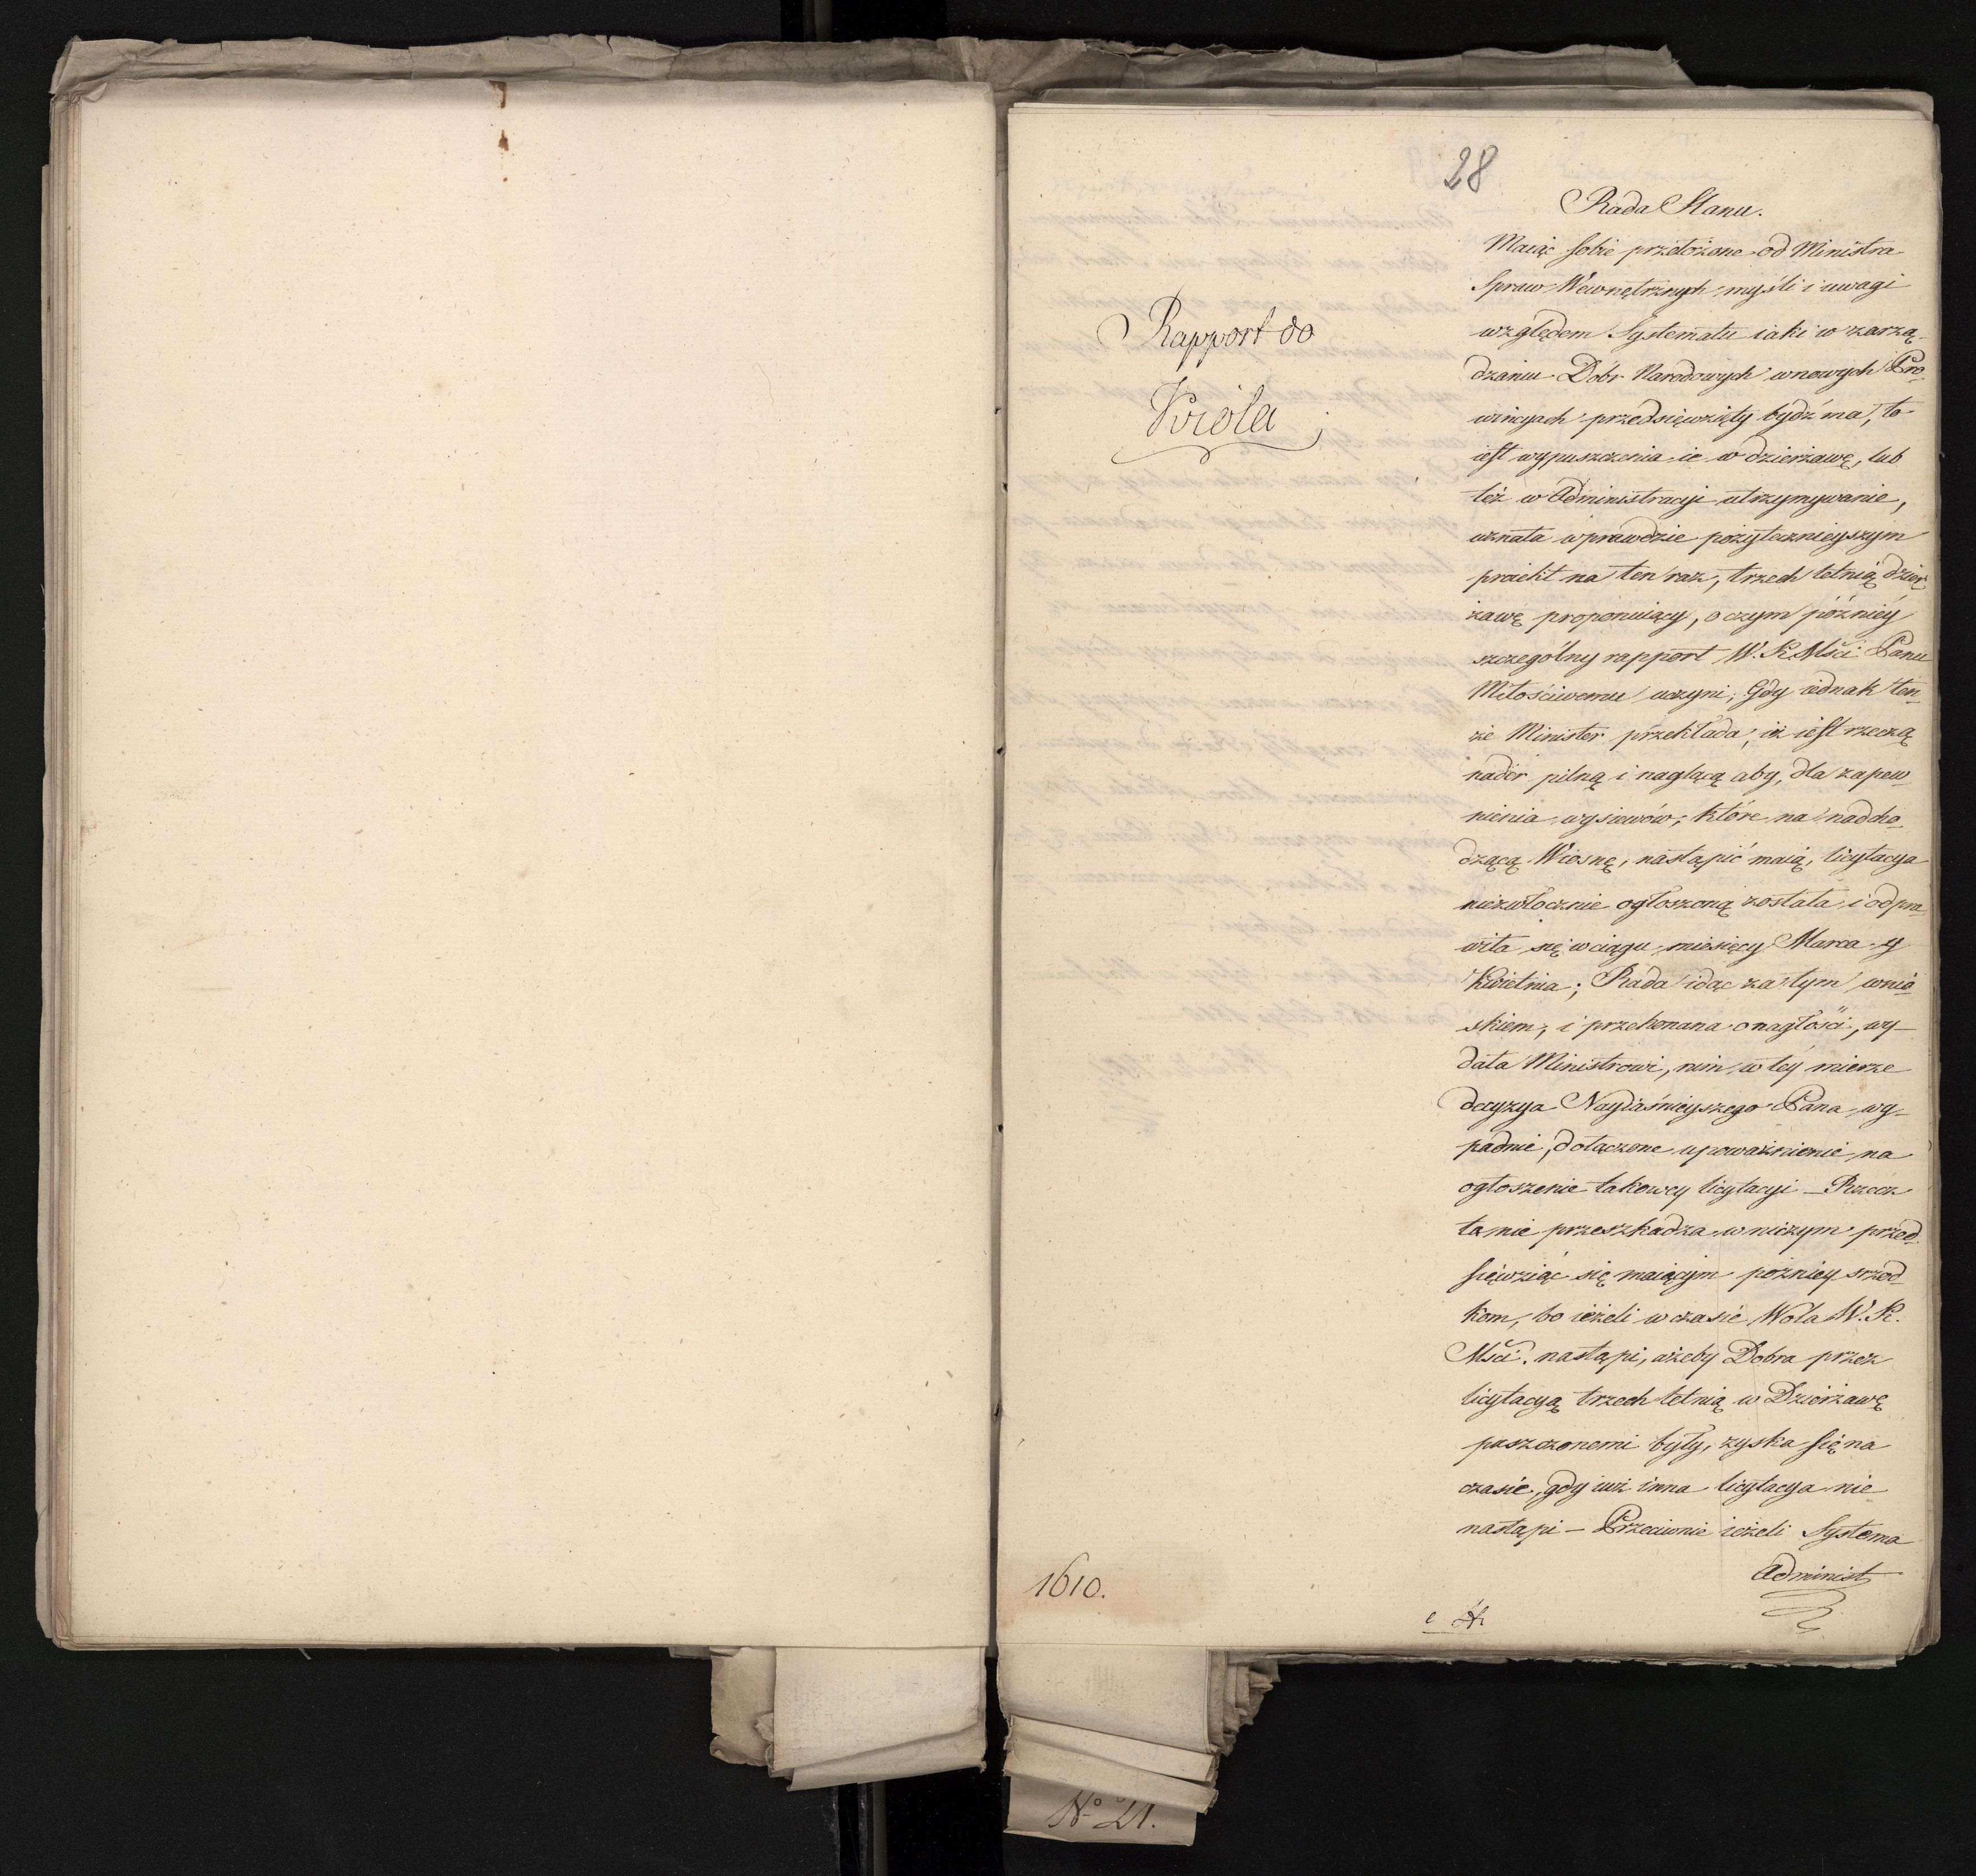 28
Rada Stanu.
Rapport do
Króla
Maiąc sobie przełożone od Ministra
Spraw Wewnętrznych myśli i uwagi
względem Systematu iaki w zarzą-
dzaniu Dóbr Narodowych w nowych Pro-
wincyach przedsięwzięty bydź ma, to
iest wypuszczenia ie w dzierżawę, lub
też w Administracyi utrzymywanie,
uznała wprawdzie pożytecznieyszym
proiekt na ten raz, trzech letnią dzier-
żawę proponuiący, o czym późniéy
szczególny rapport W. K Mści Panu
Miłościwemu uczyni; Gdy iednak ten-
że Minister przekłada, iż iest rzeczą
nader pilną i naglącą aby, dla zapew-
nienia wysiewów, które na nadcho-
dzącą Wiosnę, nastąpić maią, licytacya
niezwłocznie ogłoszoną została i odpra-
wiła się w ciągu miesięcy Marca y
Kwietnia; Rada idąc za tym wnio-
skiem, i przekonana o nagłości, wy-
dała Ministrowi, nim w téy mierze
decyzya Nayiaśnieyszego Pana wy-
padnie, dołączone upoważnienie na
ogłoszenie takowey licytacyi – Rzecz
ta nie przeszkadza w niczym przed-
sięwziąć się maiącym pożniey srzod-
kom, bo ieżeli w czasie Wola W. K.
Mści. nastąpi, ażeby Dobra przez
licytacyą trzech letnią w Dzierżawę
puszczonemi były, zyska się na
czasie, gdy iuż inna licytacya nie
nastąpi – Przeciwnie ieżeli Systema
Administ
1610.
N° 21.